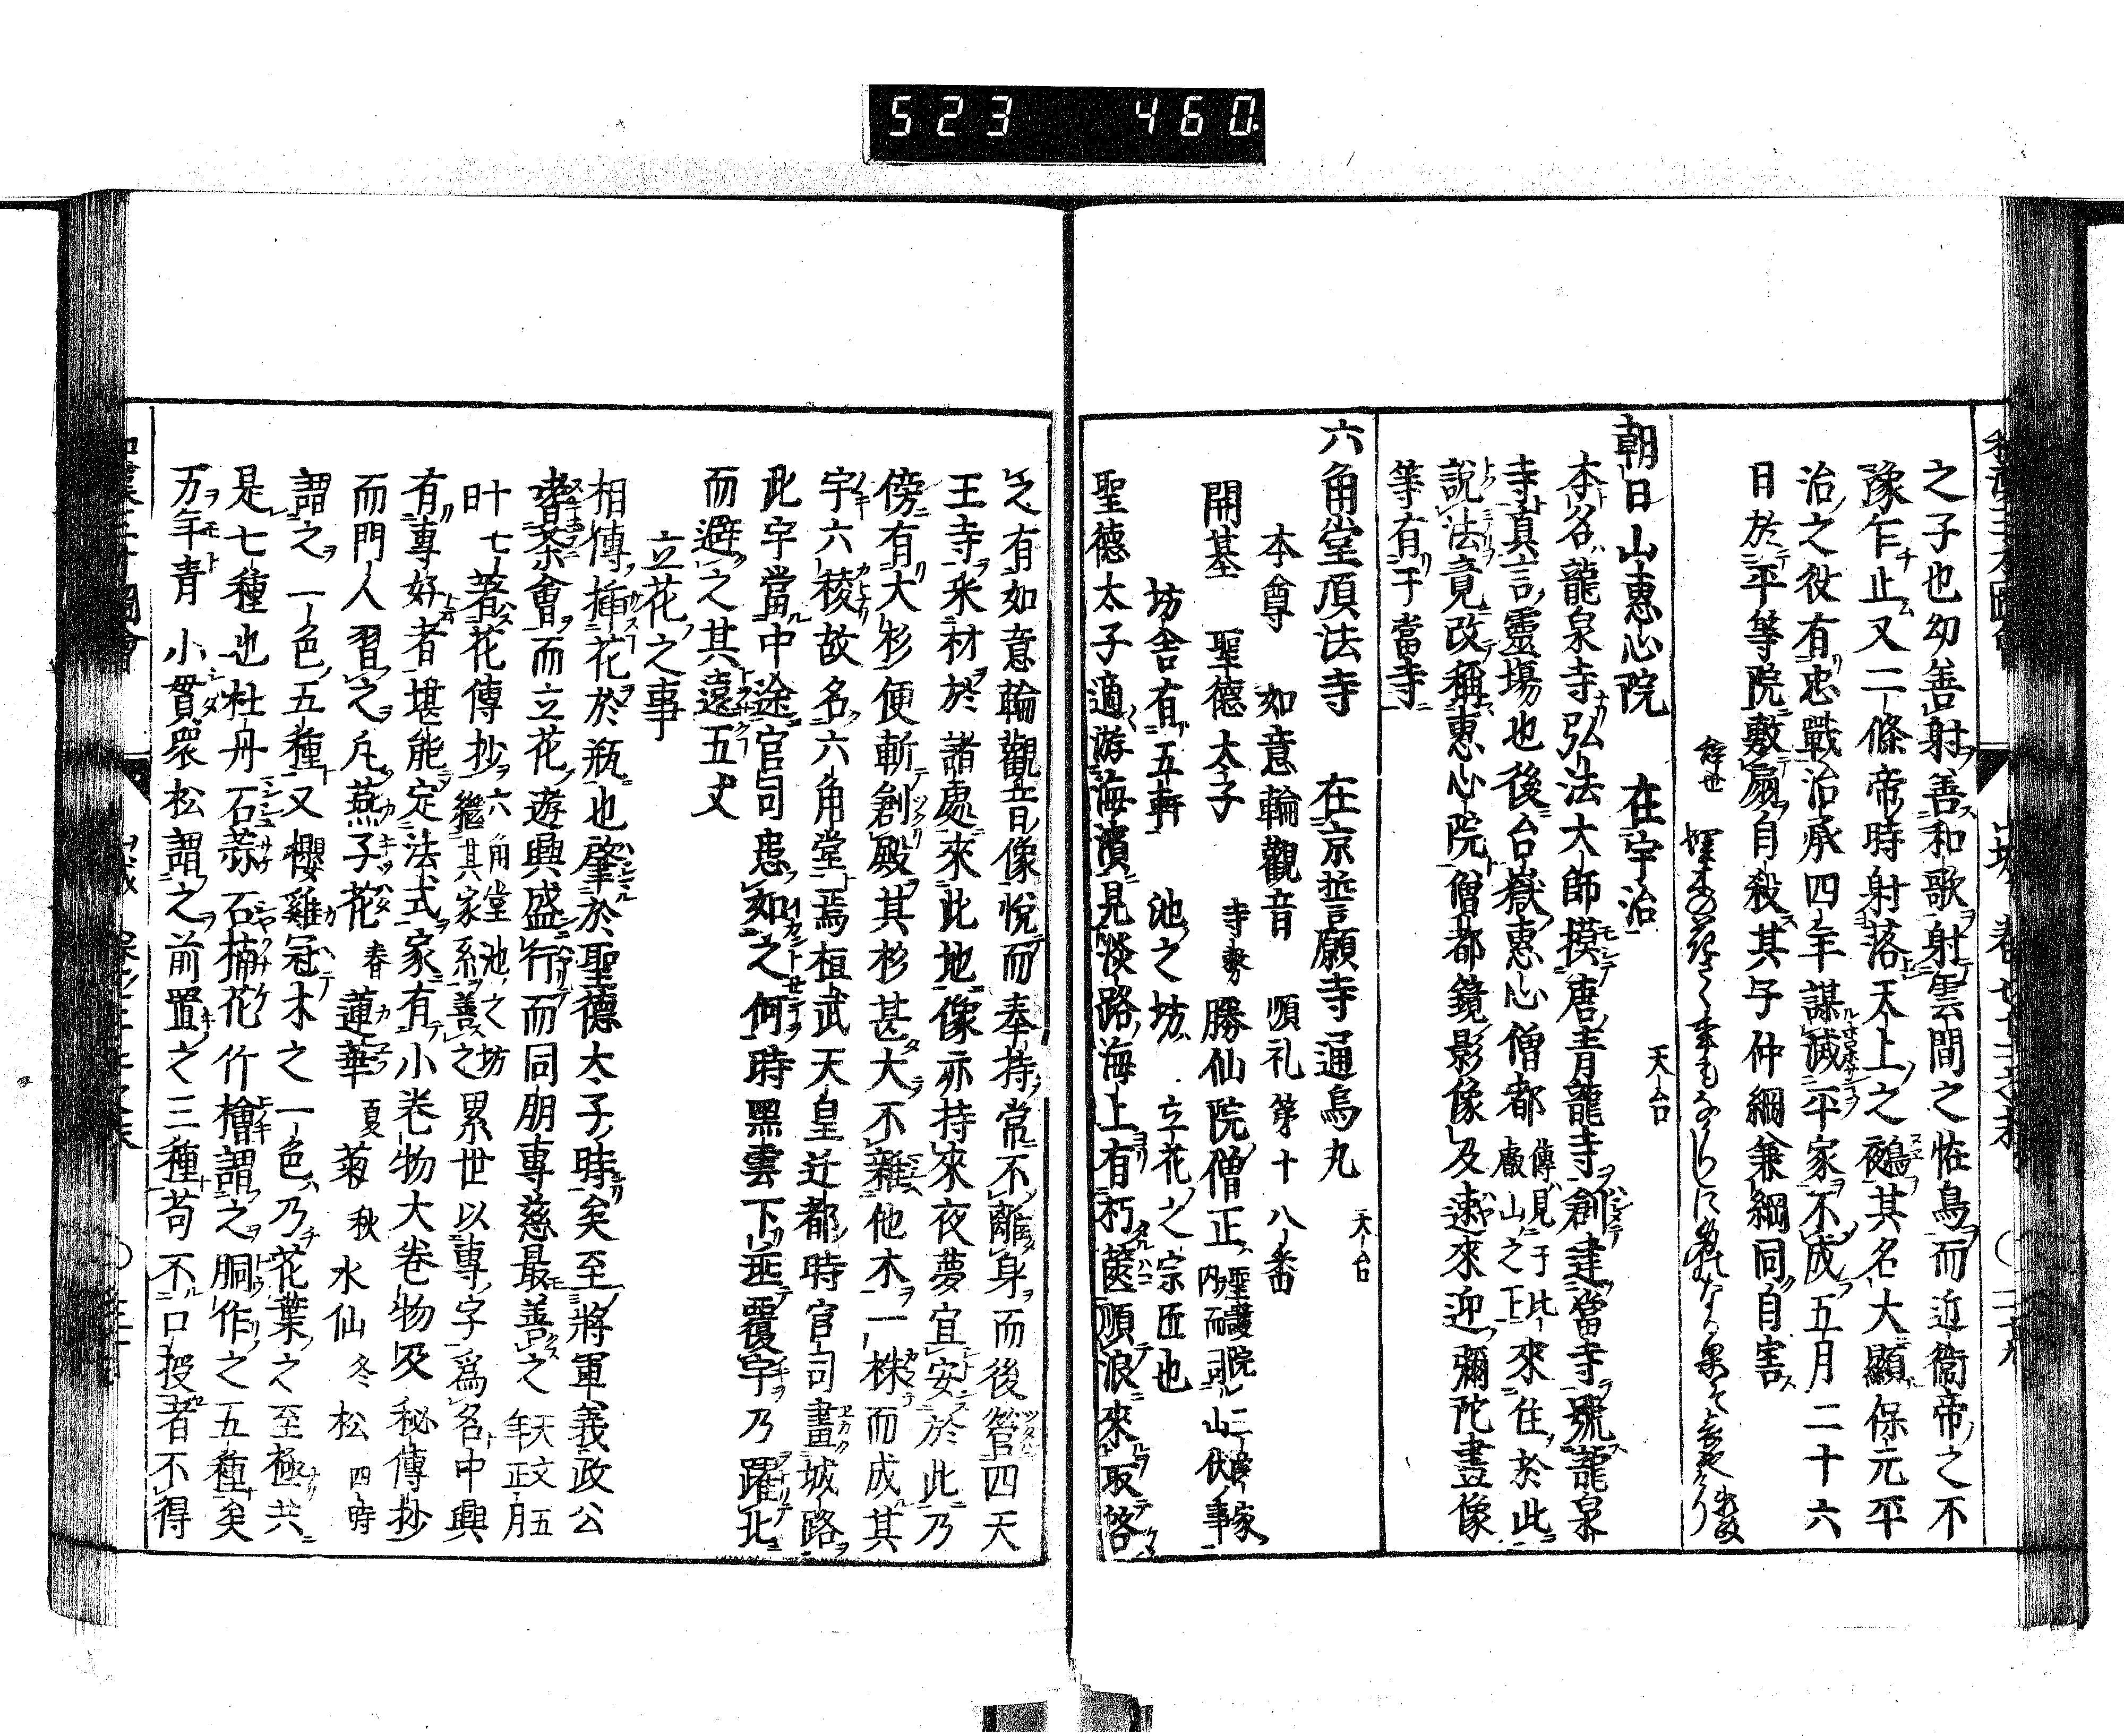 523 460.
之子也幼善射善和歌射雲間之恠鳥而近衞帝之不
豫乍止又二條帝時射落天上之鵺其名大顯保元平
治之役有忠戰治承四年謀滅平家不成五月二十六
日於平等院敷扇自殺其子仲綱兼綱同自害
辞世 埋木の花さく事もなかりしに身のなる果そ
朝日山惠心院 在宇治 天台
本名龍泉寺弘法大師摸唐青龍寺創建當寺號龍泉
寺真言靈場也後台嶽惠心僧都傳見于此來住於此
巖山之下
說法竟改稱惠心院僧都鏡影像及速來迎彌陀畫像
等有于當寺
六角堂頂法寺 在京誓願寺通烏丸 天台
本尊 如意輪觀音 順礼第十八番
開基 聖德太子 寺務 勝仙院僧正 聖護院二室家
內而司山伏事
坊舍有五軒 池之坊 立花之宗匠也
聖德太子適游海濱見淡路海上有朽篋順浪來取啓
之有如意輪觀音像悅而奉持常不離身而後營四天
王寺釆材於諸處來此地像亦持來夜夢宜安於此乃
傍有大杉便斬創殿其杉甚大不雜他木一株而成其
宇六稜故名六角堂焉桓武天皇迁都時官司畫城路
此宇當中途官司患如之何時黑雲下垂覆宇乃躍北
而避之其遠五丈
立花之事
相傳挿花於瓶也肇於聖德太子時矣至將軍義政公
嗜茶會而立花遊興盛行而同朋專慈最善之 天文五
年正月
十七
日 著花傳抄 六角堂池之坊
繼其家系善之 累世以專字爲名中興
有專好者堪能定法式家有小卷物大卷物及秘傳抄
而門人習之凡燕子花春 蓮華夏 菊秋 水仙冬 松四時
謂之一色五種又櫻雞冠木之一色乃花葉之至極共
是七種也杜丹石蒜石楠花竹檜謂之胴作之五種矣
万年青小貫衆松謂之前置之三種苟不口授者不得